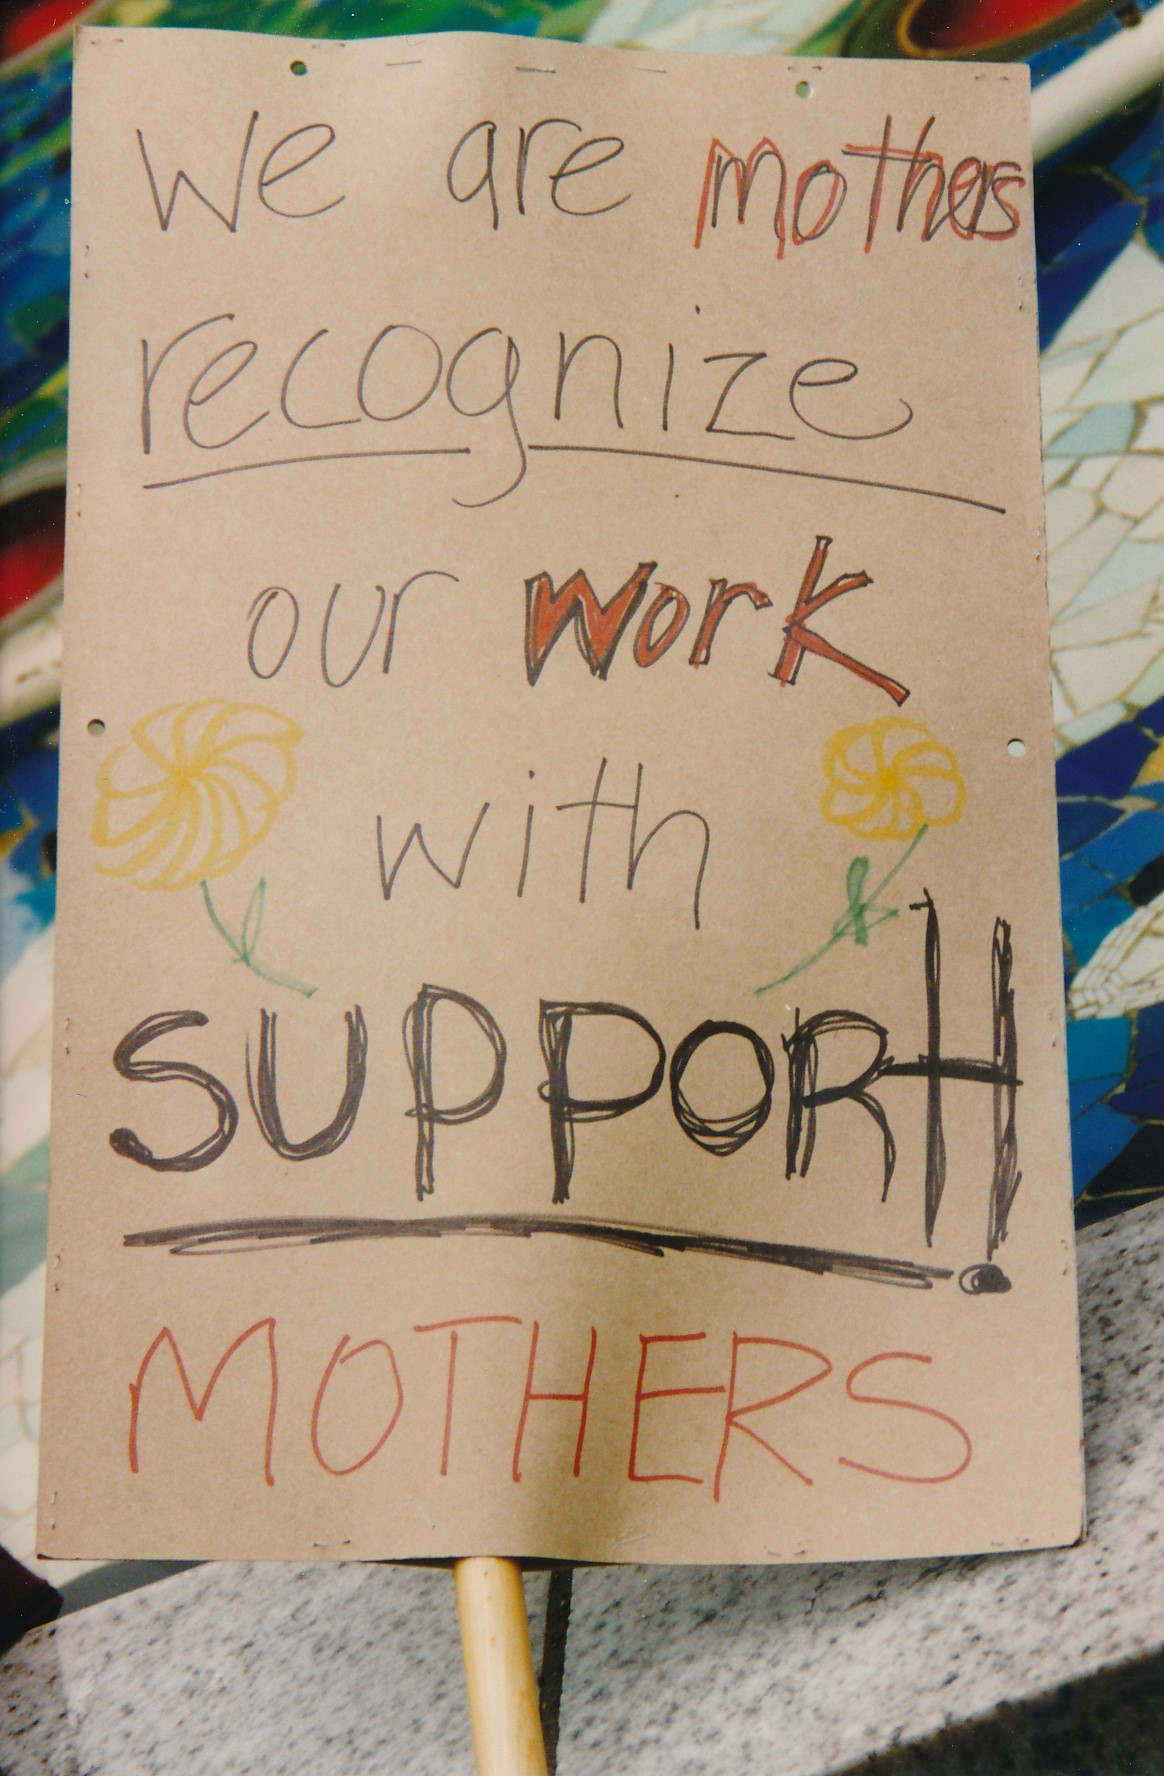 we are mothers
recognize
our work
with
SUPPORT!
MOTHERS